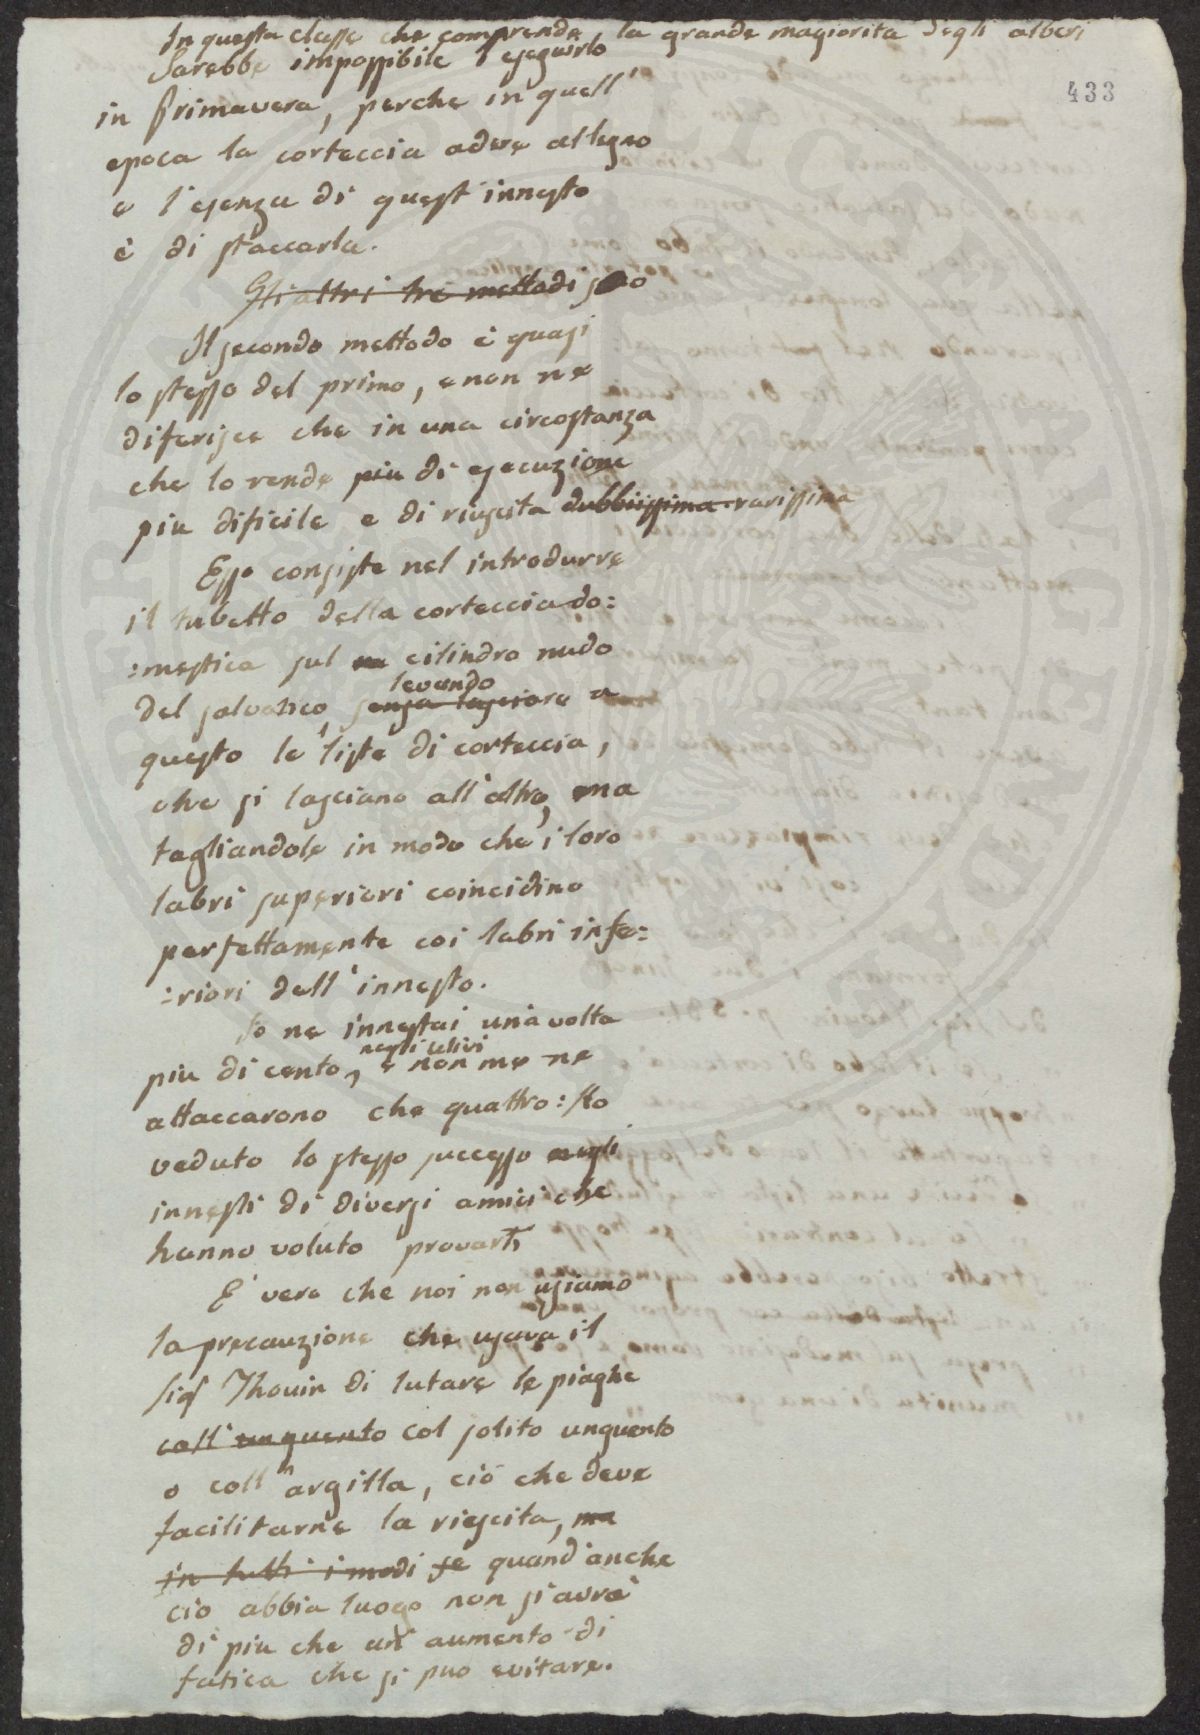 In questa classe che comprende la grande magiorita degli alberi
Sarebbe impossibile l'eseguirlo
433
in primavera, perche in quell'
epoca la corteccia adere al legno
e l'esenza di quest'innesto
è di staccarla.
Gli altri tre mettodi sono
Il secondo mettodo è quasi
lo stesso del primo, e non ne
diferisce che in una circostanza
che lo rende piu di esecuzione
piu dificile e di riuscita dubbiissima rarissima
Esso consiste nel introdurre
il tubetto della corteccia do:
:mestica sul cilindro nudo
levando
del salvatico, senza lasciare a
questo le liste di corteccia,
che si lasciano all'altro, ma
tagliandole in modo che i loro
labri superiori coincidino
perfettamente coi labri infe:
:riori dell'innesto.
Io ne innestai una volta
negli ulivi
piu di cento, e non me ne
attaccarono che quattro: Ho
veduto lo stesso successo negli
innesti di diversi amici che
hanno voluto provarli
E' vero che noi non usiamo
la precauzione che usava il
Sigr Thouin di lutare le piaghe
coll' unguento col solito unguento
o coll'argilla, ciò che deve
facilitarne la riescita, ma
in tutti i modi se quand'anche
ciò abbia luogo non si avrà
di piu che un aumento di
fatica che si può evitare.